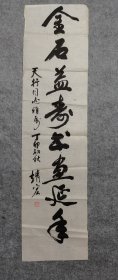 金石益寿书画延年
天行同志雅属
丁卯初秋